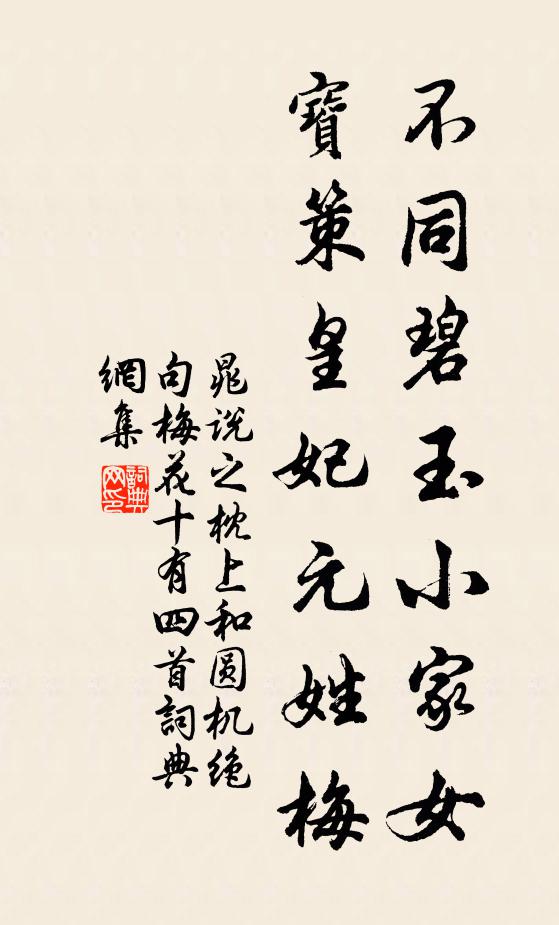 不同碧玉小家女
寶策皇妃元姓梅
晁说之枕上和圆机绝
句梅花十有四首詞典
網集
詞典网印